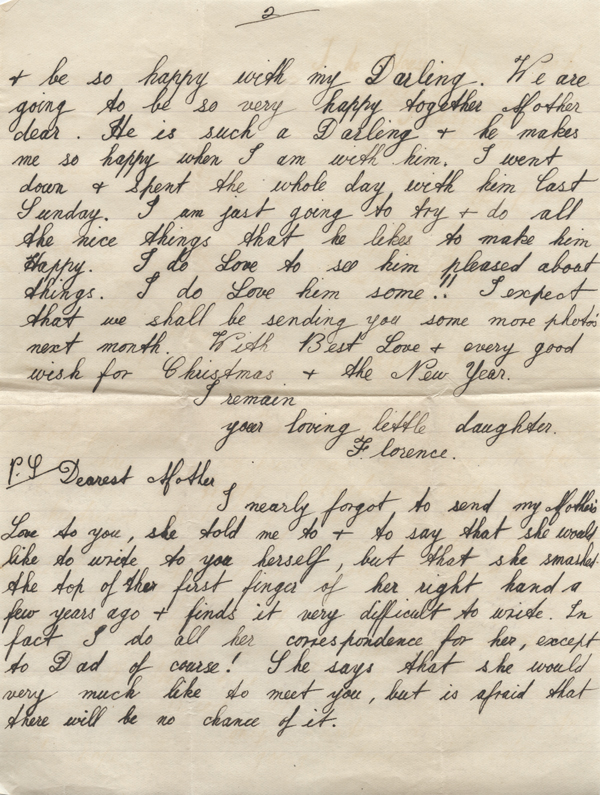 2
+ be so happy with my Darling. We are
going to be so very happy together Mother
dear. He is such a Darling + he makes
me so happy when I am with him. I went
down + spent the whole day with him last
Sunday. I am just going to try + do all
the nice things that he likes to make him
Happy. I do Love to see him pleased about
things. I do Love him some!! I expect
that we shall be sending you some more photos
next month. With Best Love + every good
wish for Christmas + the New Year.
I remain
your loving little daughter.
Florence.
P.S Dearest Mother
I nearly forgot to send my Mother's
Love to you, she told me to + to say that she would
like to write to you herself, but that she smashed
the top of the first finger of her right hand a
few years ago + finds it very difficult to write. In
fact I do all her correspondence for her, except
to Dad of course! She says that she would
very much like to meet you, but is afraid that
there will be no chance of it.